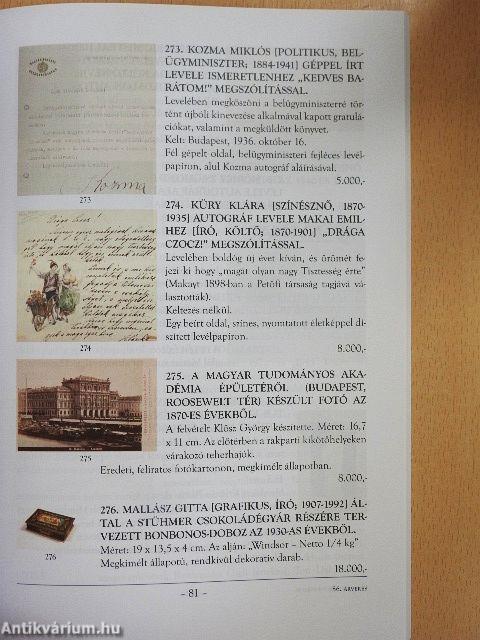 273. KOZMA MIKLÓS [POLITIKUS, BEL-
ÜGYMINISZTER; 1884-1941] GÉPPEL ÍRT
LEVELE ISMERETLENHEZ „KEDVES BA-
RÁTOM!" MEGSZÓLÍTÁSSAL.
Levelében megköszöni a belügyminiszterré tör-
tént újbóli kinevezése alkalmával kapott gratulá-
ciókat, valamint a megküldött könyvet.
Kelt: Budapest, 1936. október 16.
Fél gépelt oldal, belügyminiszteri fejléces levél-
papíron, alul Kozma autográf aláírásával.
5.000,-
Kozma
273
274. KÜRY KLÁRA [SZÍNÉSZNŐ, 1870-
1935] AUTOGRÁF LEVELE MAKAI EMIL-
HEZ [ÍRÓ, KÖLTŐ; 1870-1901] „DRÁGA
CZOCZ!" MEGSZÓLÍTÁSSAL.
Levelében boldog új évet kíván, és örömét fe-
jezi ki hogy „magát olyan nagy Tisztesség érte"
(Makayt 1898-ban a Petőfi társaság tagjává vá-
lasztották).
Keltezés nélkül.
Egy beírt oldal, színes, nyomtatott életképpel dí-
szített levélpapíron.
8.000,-
274
275. A MAGYAR TUDOMÁNYOS AKA-
DÉMIA ÉPÜLETÉRŐL (BUDAPEST,
ROOSEWELT TÉR) KÉSZÜLT FOTÓ AZ
1870-ES ÉVEKBŐL.
A felvételt Klösz György készítette. Méret: 16,7
x 11 cm. Az előtérben a rakparti kikötőhelyeken
várakozó teherhajók.
275
Eredeti, feliratos fotókartonon, megkímélt állapotban.
8.000,-
276. MALLÁSZ GITTA [GRAFIKUS, ÍRÓ; 1907-1992] ÁL-
TAL A STÜHMER CSOKOLÁDÉGYÁR RÉSZÉRE TER-
VEZETT BONBONOS-DOBOZ AZ 1930-AS ÉVEKBŐL.
Méret: 19 x 13,5 x 4 cm. Az alján: „Windsor – Netto 1/4 kg"
Megkímélt állapotú, rendkívül dekoratív darab.
276
18.000,-
- 81 -
86. ÁRVERÉS
Antikvárium.hu